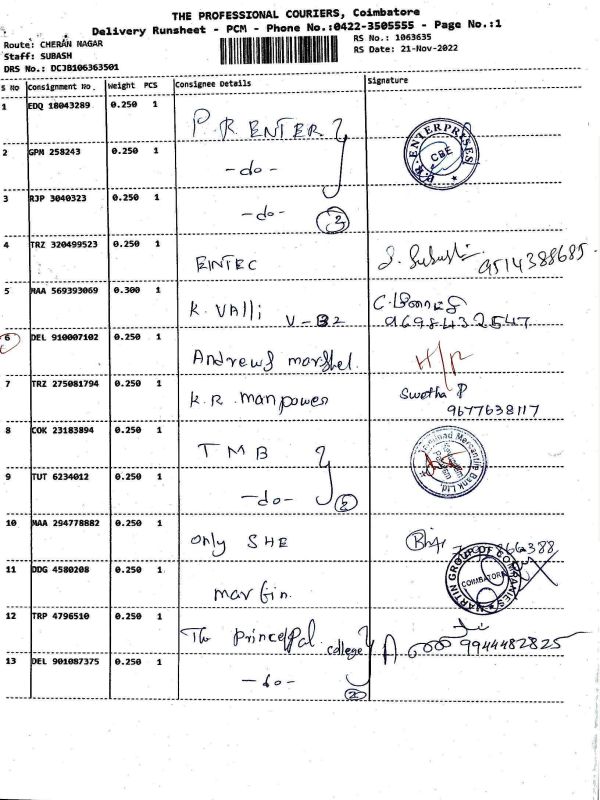 THE PROFESSIONAL COURIERS, Coimbatore
Delivery Runsheet - PCM - Phone No.:0422-3505555 - Page No.:1
Route: CHERAN NAGAR
Staff: SUBASH
DRS No.: DCJB106363501
RS No.: 1063635
RS Date: 21-Nov-2022
S No Consignment No. Weight PCS Consignee Details Signature
1 EDQ 18043289 0.250 1 P.R. ENTER
P.R. ENTERPRISES CBE
2 GPM 258243 0.250 1 -do-
3 RJP 3040323 0.250 1 -do- 3
4 TRZ 320499523 0.250 1 EINTEC J. Subash 9514388685
5 MAA 569393069 0.300 1 K. Valli V-B2
9698432547
6 DEL 910007102 0.250 1 Andrews marshel H/P
7 TRZ 275081794 0.250 1 K.R. manpower Swetha P
9677638117
8 COK 23183894 0.250 1 TMB
Tamilnad Mercantile Bank Ltd.
9 TUT 6234012 0.250 1 -do- 2
10 MAA 294778882 0.250 1 only SHE
11 DDG 4580208 0.250 1 martin.
MARTIN GROUP OF COMPANIES COIMBATORE
12 TRP 4796510 0.250 1 The princeppal college 9944482825
13 DEL 901087375 0.250 1 -do- 2